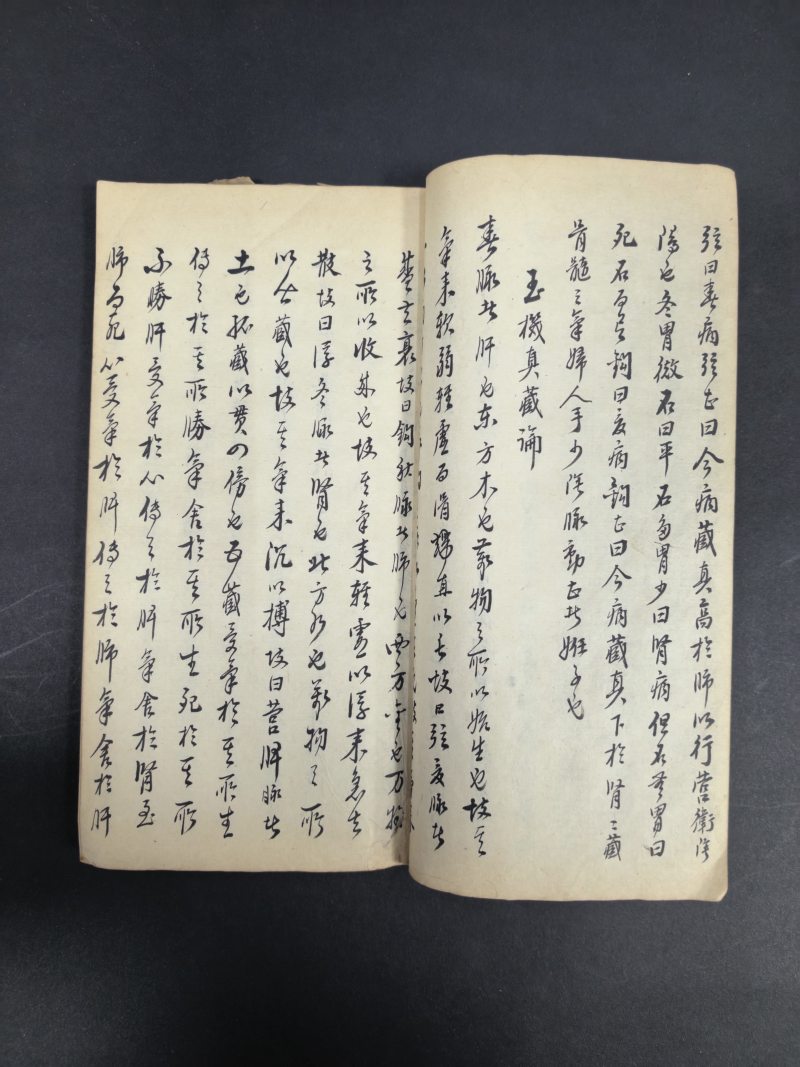 弦曰春病弦甚曰今病藏真高於肺以行营衛陰
陽也冬胃微石曰平石多胃少曰腎病但石無胃曰
死石而有鈎曰夏病鈎甚曰今病藏真下於腎〻藏
骨髓之氣婦人手少陰脉動甚者姙子也
玉機真藏論
春脉者肝也东方木也萬物之所以始生也故其
氣来軟弱軽虛而滑端直以長故曰弦夏脉者
盛去衰故曰鈎秋脉者肺也西方金也万物
之所以收成也故其氣来軽虛以浮来急去
散故曰浮冬脉者腎也北方水也萬物之所
以合藏也故其氣来沉以搏故曰营脾脉者
土也孤藏以貫四傍也五藏受氣於其所生
傳之於其所勝氣舍於其所生死於其所
不勝肝受氣於心傳之於脾氣舍於腎至
肺而死心受氣於脾傳之於肺氣舍於肝